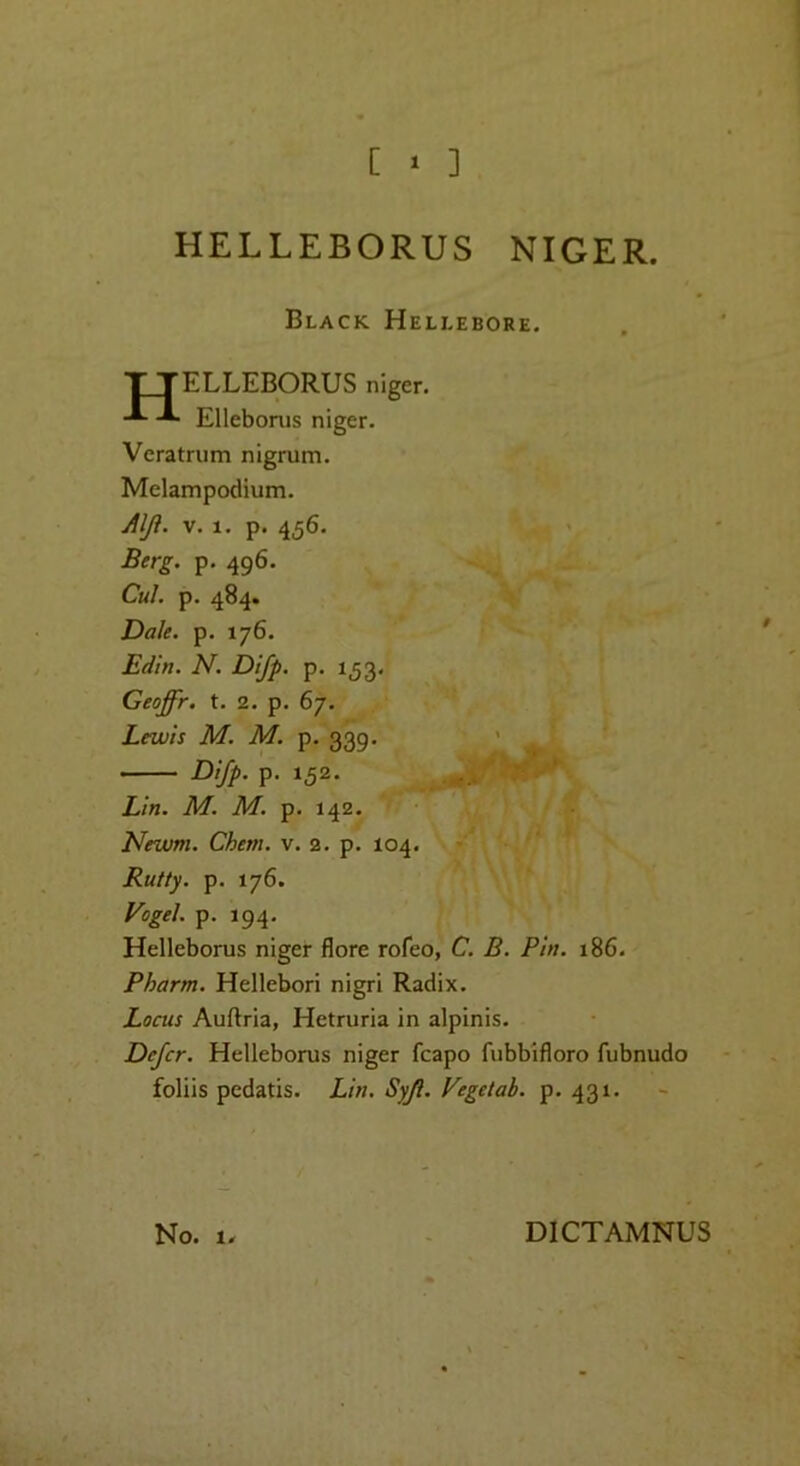 [ 1 ]
HELLEBORUS NIGER.
BLACK HELLEBORE.
HELLEBORUS niger.
Elleborus niger.
Veratrum nigrum.
Melampodium.
Alſt. v. 1. p. 456.
Berg. p. 496.
Cul. p. 484.
Dale. p. 176.
Edin. N. Diſp. p. 153.
Geoffr. t. 2. p. 67.
Lewis M. M. p. 339.
—— Diſp. p. 152.
Lin. M. M. p. 142.
Newm. Chem. v. 2. p. 104.
Rutty. p. 176.
Vogel. p. 194.
Helleborus niger flore roſeo, C. B. Pin. 186.
Pharm. Hellebori nigri Radix.
Locus Auſtria, Hetruria in alpinis.
Deſcr. Helleborus niger ſcapo ſubbifloro ſubnudo
foliis pedatis. Lin. Syſt. Vegetab. p. 431.
No. 1. DICTAMNUS